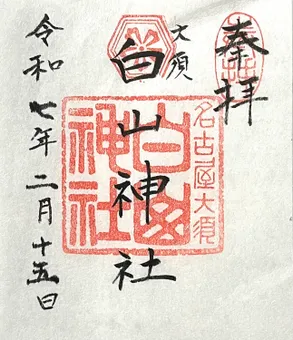 奉拝
大須
白山神社
名古屋大須
白山神社
令和七年二月十五日